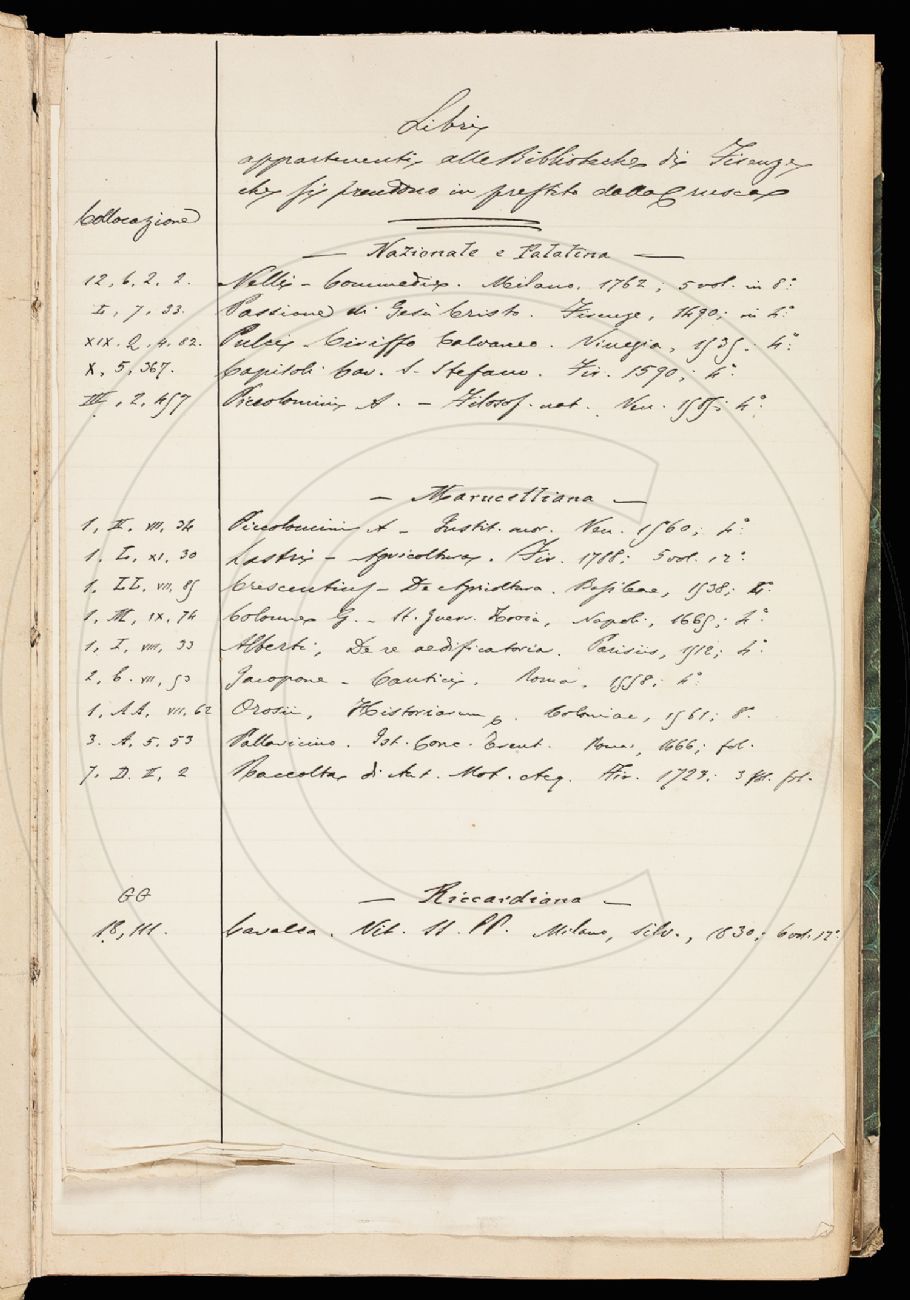 Libri
appartenenti alle Biblioteche di Firenze
che si prendono in prestito dalla Crusca
Collocazione
— Nazionale e Palatina —
12, 6. 2. 2. Nelli - Commedie. Milano, 1762; 5 vol. in 8.°
I, 7, 33. Passione di Gesù Cristo. Firenze, 1490; in 4.°
XIX. 2. 4. 82. Pulci Ciriffo Calvaneo. Vinegia, 1535. 4.°
X, 5, 367. Capitoli Cav. S. Stefano. Fir. 1590; 4.°
III, 2, 457 Piccolomini A. - Filosof. nat. Ven. 1585; 4.°
— Marucelliana —
1, II, VIII, 34 Piccolomini A - Instit. mor. Ven. 1560; 4.°
1. L, XI, 30 Lastri - Agricoltura. Fir. 1788; 5 vol. 12.°
1. LL. VII, 85 Crescentius - De Agricoltura. Basileae, 1538; 4.°
1, M, IX, 74 Colonna G. - St. Guerr. Troia, Napoli, 1665; 4.°
1, I, VIII, 33 Alberti, De re aedificatoria. Parisiis, 1512; 4.°
2, C. VII, 53 Jacopone - Cantici. Roma, 1558; 4.°
1, AA, VII, 62 Orosii, Historiarum. Coloniae, 1561; 8.°
3. A, 5, 53 Pallavicino. Ist. Conc. Trent. Roma, 1666; fol.
7. D. II, 2 Raccolta di Aut. Mot. Acq. Fir. 1723; 3 fol.
— Riccardiana —
GG
18, III. Cavalca. Vit. SS. PP. Milano, Silv., 1830; 6 vol. 12.°